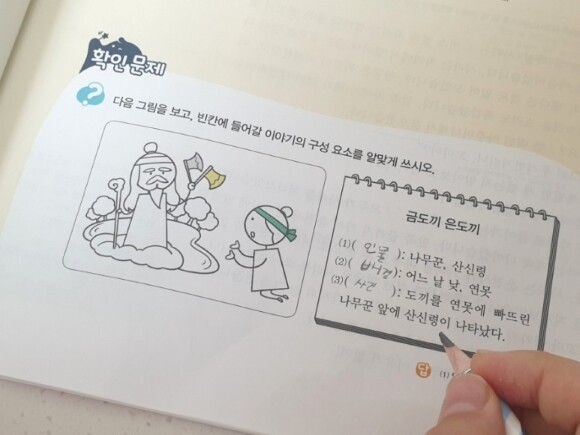 확인 문제
?
다음 그림을 보고, 빈칸에 들어갈 이야기의 구성 요소를 알맞게 쓰시오.
금도끼 은도끼
(1)( 인물 ): 나무꾼, 산신령
(2)( 배경 ): 어느 날 낮, 연못
(3)( 사건 ): 도끼를 연못에 빠뜨린
나무꾼 앞에 산신령이 나타났다.
답 (1)